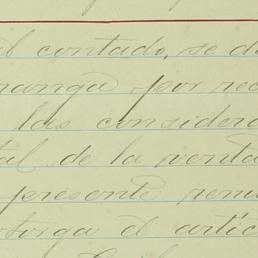 al contado, se d
manga por rec
las considera
tal de la venta
presente remi
otorga el artíc